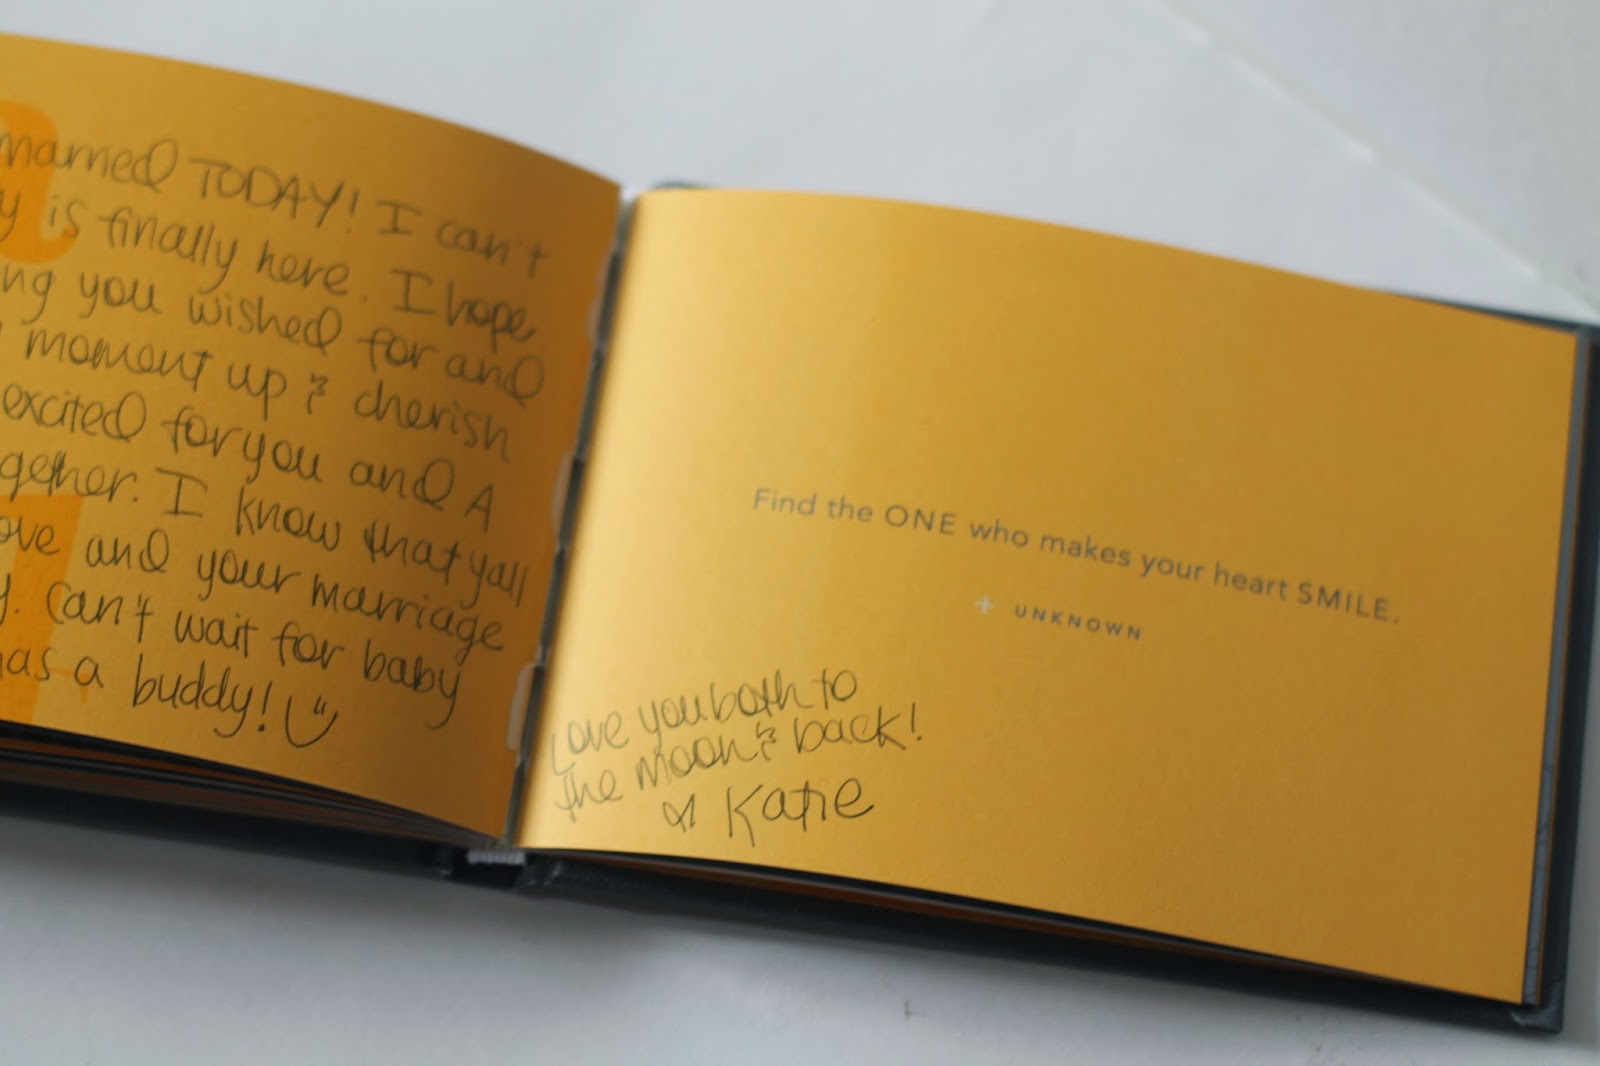 married TODAY! I can't
y is finally here. I hope
ng you wished for and
moment up & cherish
excited for you and A
gether. I know that yall
ove and your marriage
y. Can't wait for baby
has a buddy!
Find the ONE who makes your heart SMILE.
+ UNKNOWN
Love you both to
the moon & back!
Katie